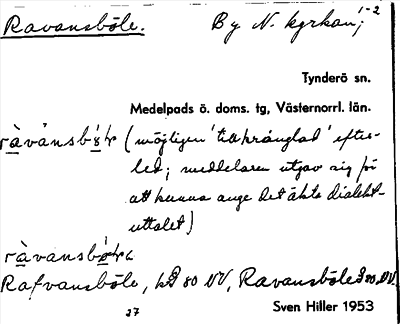 Ravansböle. By N. kyrkan; 1-2
Tynderö sn.
Medelpads ö. doms. tg, Västernorrl. län.
(möjligen 'tillkrånglad' efter-
led; meddelaren utgav sig för
att kunna ange det äkta dialekt-
uttalet)
Rafvansböle, 80 NV, Ravansböle
27 Sven Hiller 1953